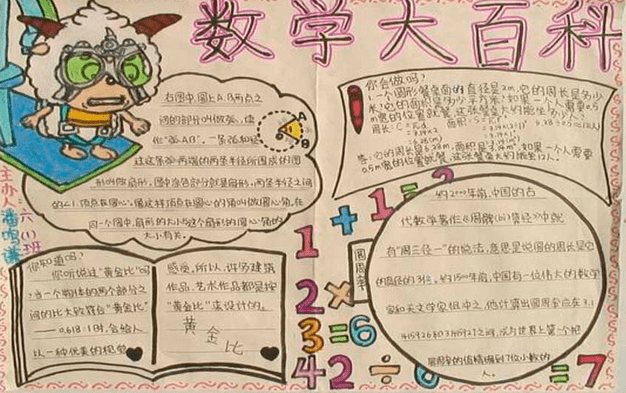 数学大百科
右图中,圆上A.B两点之
间的部分叫做弧,读
作“弧AB”,一条弧和经
过这条弧两端的两条半径所围成的图
形叫做扇形,图中涂色部分就是扇形,两条半径之间
的∠1,顶点在圆心,像这样顶点在圆心的角叫做圆心角,在
同一个圆中,扇形的大小与这个扇形的圆心角的
大小有关。
A
B
你会做吗?
一个圆形餐桌面的直径是2m,它的周长是多少
米?它的面积是多少平方米?如果一个人需要0.5
m宽的位置就餐,这张餐桌大约能坐多少人?
答:它的周长是6.28m,面积是3.14m²,如果一个人需要
0.5m宽的位置就餐,这张餐桌大约能坐12人。
主办人:
六(1)班
你知道吗?
你听说过“黄金比”吗
?当一个物体的两个部分之
间的比大致符合“黄金比”
——0.618:1时,会给人
以一种优美的视觉
感受,所以,许多建筑
作品、艺术作品都是按
“黄金比”来设计的。
黄金比
1+1=2
2×
3=6
42÷6=7
圆周率
约2000年前,中国的古
代数学著作《周髀算经》中就
有“周三径一”的说法,意思是说圆的周长是它
的直径的3倍。约1500年前,中国有一位伟大的数学
家和天文学家祖冲之,他计算出圆周率应在3.1
415926和3.1415927之间,成为世界上第一个把
圆周率的值精确到7位小数的
人。